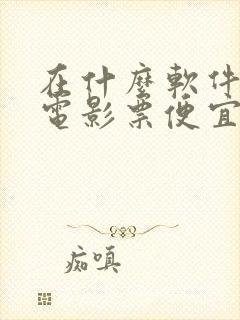 在什麼軟件
電影票便宜
痴嗔